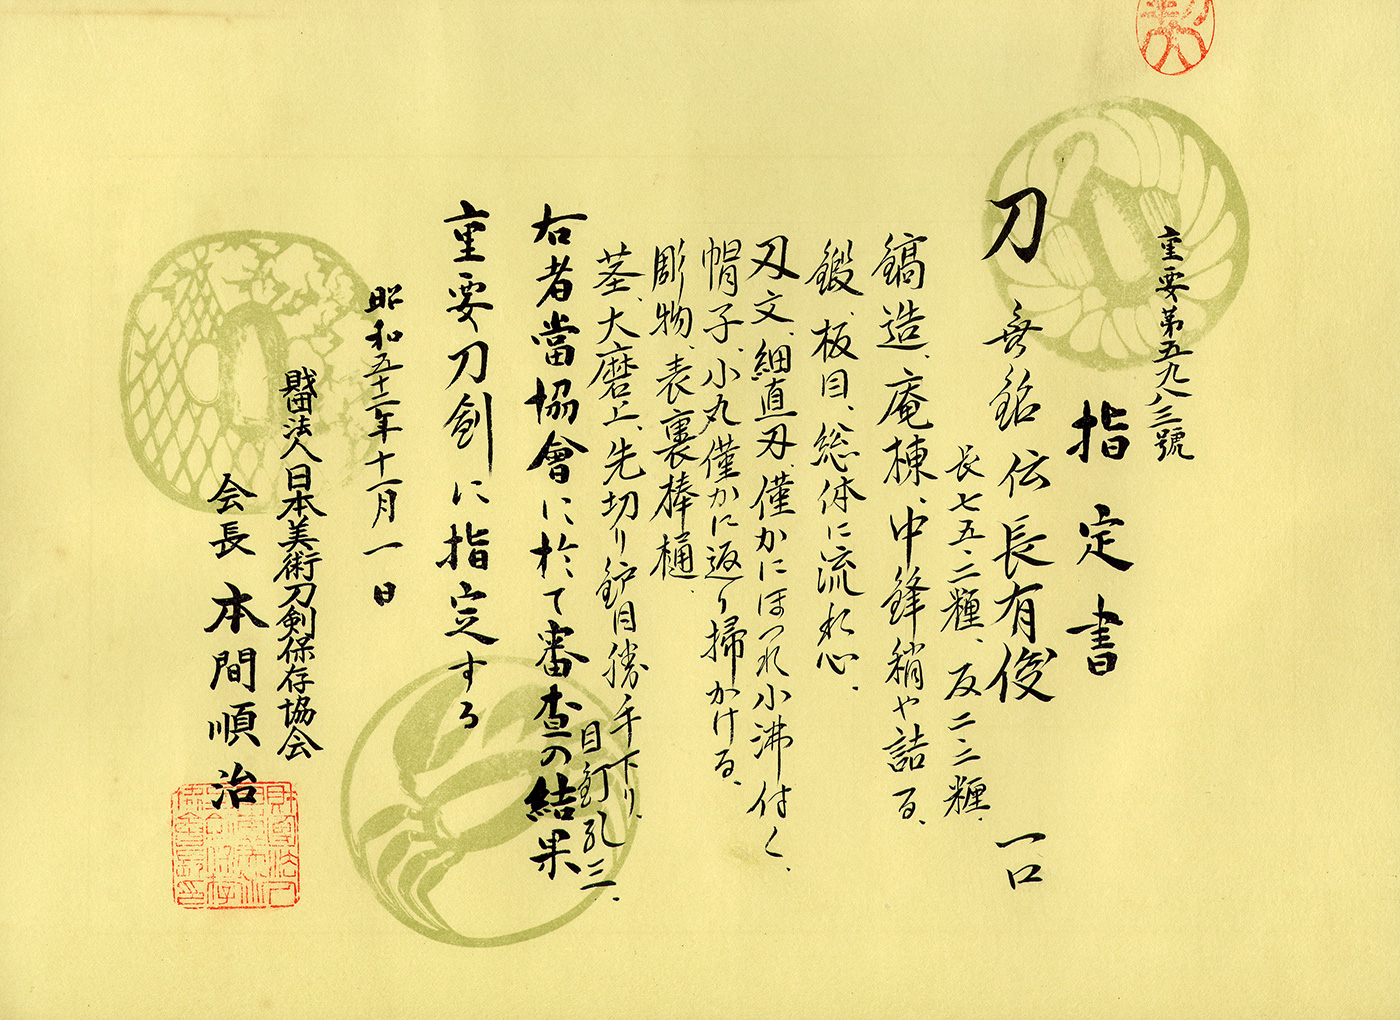 重要第五九八三號
指定書
刀 無銘伝長有俊 一口
長七五・二糎、反二・三糎、
鎬造、庵棟、中鋒稍や詰る、
鍛、板目、総体に流れ心、
刃文、細直刃、僅かにほつれ小沸付く、
帽子、小丸僅かに返り掃かける、
彫物、表裏棒樋、
茎、大磨上、先切り鑢目勝手下り、
目釘孔三、
右者當協會に於て審査の結果
重要刀剣に指定する
昭和五十二年十一月一日
財団法人日本美術刀剣保存協会
会長 本間順治